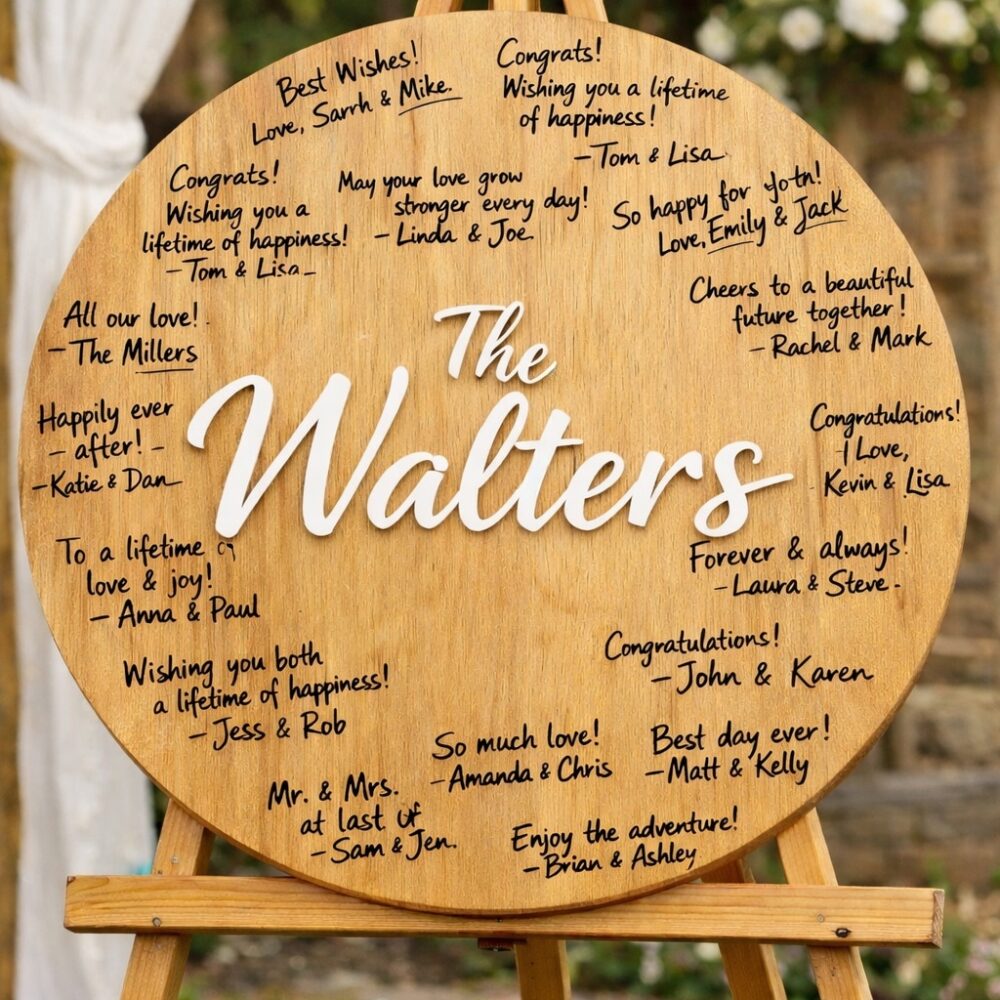 Best Wishes!
Love, Sarrh & Mike.
Congrats!
Wishing you a lifetime
of happiness!
- Tom & Lisa
Congrats!
Wishing you a
lifetime of happiness!
- Tom & Lisa
May your love grow
stronger every day!
- Linda & Joe.
So happy for
Love, Emily & Jack
Cheers to a beautiful
future together!
- Rachel & Mark
All our love!
- The Millers
The
Walters
Happily ever
- after! -
- Katie & Dan
Congratulations!
Love,
Kevin & Lisa
To a lifetime
love & joy!
- Anna & Paul
Forever & always!
- Laura & Steve -
Wishing you both
a lifetime of happiness!
- Jess & Rob
Congratulations!
- John & Karen
So much love!
- Amanda & Chris
Best day ever!
- Matt & Kelly
Mr. & Mrs.
at last
- Sam & Jen.
Enjoy the adventure!
- Brian & Ashley